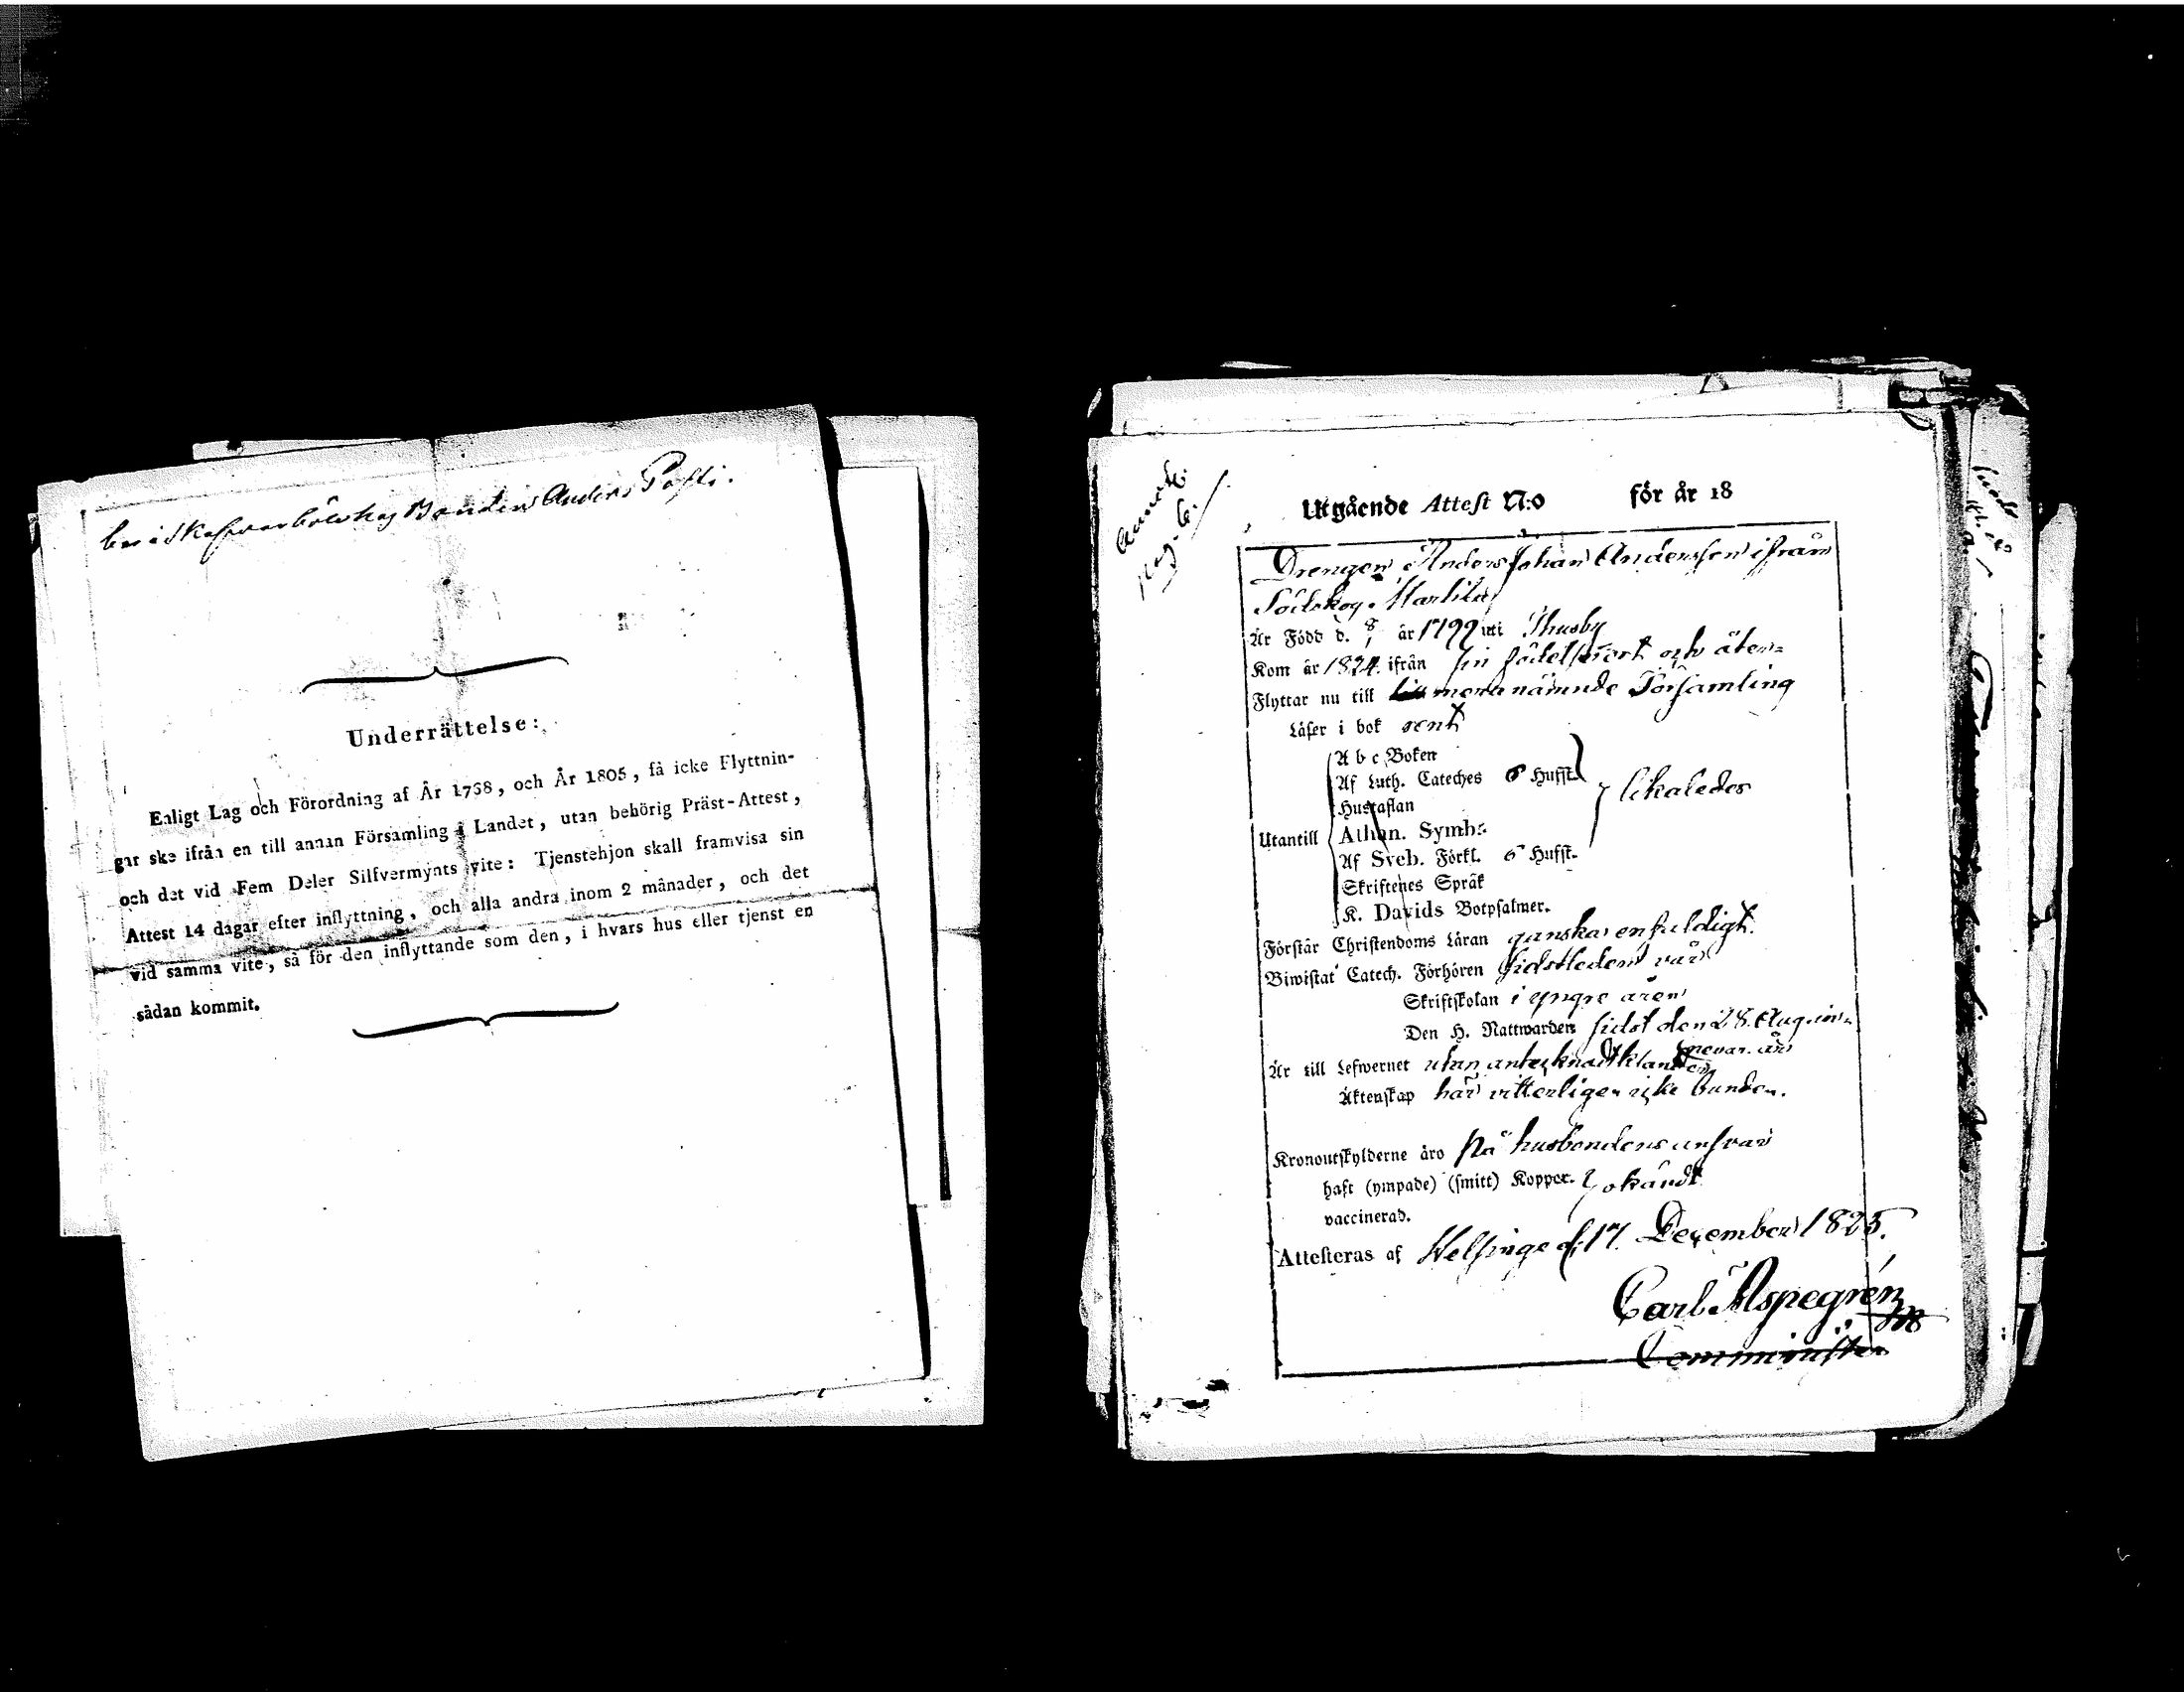 bor i Skafvarböle hos Bonden Anders Passi.
Underrättelse:
Enligt Lag och Förordning af År 1768, och År 1805, få icke Flyttnin-
gar ske ifrån en till annan Församling i Landet, utan behörig Präst-Attest,
och det vid Fem Deler Silfvermynts vite: Tjenstehjon skall framvisa sin
Attest 14 dagar efter inflyttning, och alla andra inom 2 månader, och det
vid samma vite, så för den inflyttande som den, i hvars hus eller tjenst en
sådan kommit.
Utgående Attest N:o för år 18
Drengen Anders Johan Andersson ifrån
Södskog Martila
Är Född d. 8/ år 1799 uti Thusby
Kom år 1824 ifrån sin födelseort och åter-
Flyttar nu till merannämnde Församling
Läser i bok rent
A b c Boken
Af Luth. Cateches 6 Hufst.
Hustaflan
likaledes
Utantill Athan. Symb:
Af Sveb. Förkl. 6 Hufst.
Skriftenes Språk
K. Davids Botpsalmer.
Förstår Christendoms Läran ganska enfaldigt.
Biwistat Catech. Förhören sidstledne vår
Skriftskolan i yngre åren
Den H. Nattwarden sidst den 28. Aug. in-
nevar. år
Är till Lefwernet utan antecknadt klander
Äktenskap här vitterligen icke bunden.
Kronoutskylderne äro på husbondens ansvar
haft (ympade) (smitt) Koppor. okändt
vaccinerad.
Attesteras af Helsinge d. 17. December 1825.
Carl Aspegrén
Comminister